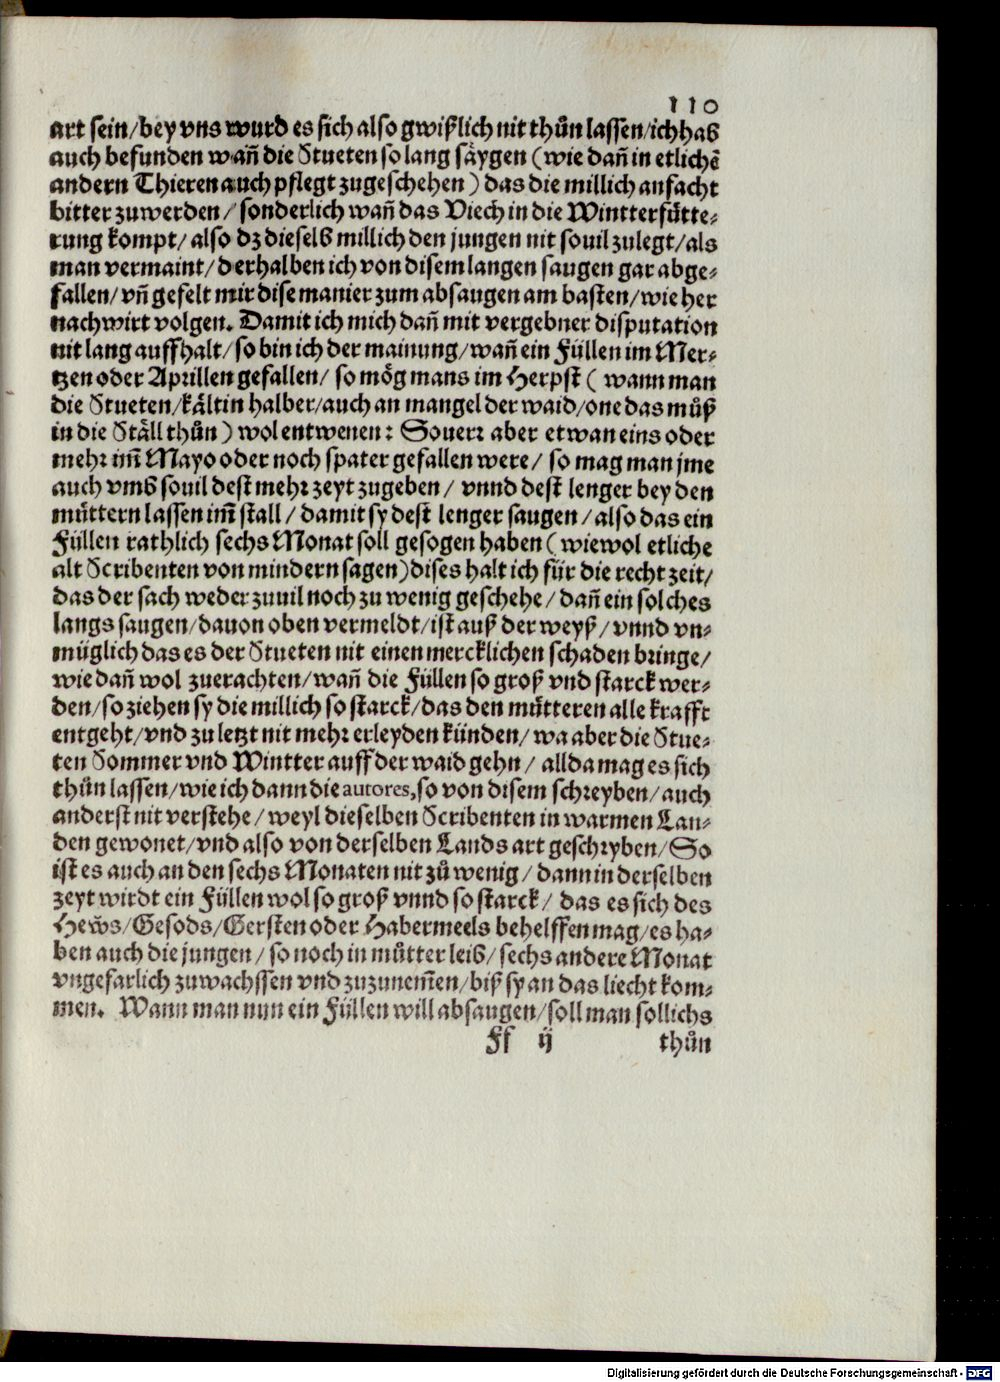 110
art sein/bey vns wurd es sich also gwißlich nit thůn lassen/ich hab
auch befunden wañ die Stueten so lang säygen (wie dañ in etlichẽ
andern Thieren auch pflegt zugeschehen) das die millich anfacht
bitter zuwerden/ sonderlich wañ das Viech in die Wintterfütte⸗
rung kompt/ also dz dieselb millich den jungen nit souil zulegt/als
man vermaint/ derhalben ich von disem langen saugen gar abge⸗
fallen/ vñ gefelt mir dise manier zum absaugen am basten/ wie her
nach wirt volgen. Damit ich mich dañ mit vergebner disputation
nit lang auffhalt/ so bin ich der mainung/ wañ ein Füllen im Mer⸗
tzen oder Aprillen gefallen/ so mög mans im Herpst ( wann man
die Stueten/ kältin halber/auch an mangel der waid/one das můß
in die Ställ thůn ) wol entwenen: Souerr aber etwan eins oder
mehr im̃ Mayo oder noch spater gefallen were/ so mag man jme
auch vmb souil dest mehr zeyt zugeben/ vnnd dest lenger bey den
müttern lassen im̃ stall/ damit sy dest lenger saugen/ also das ein
Füllen rathlich sechs Monat soll gesogen haben ( wiewol etliche
alt Scribenten von mindern sagen) dises halt ich für die recht zeit/
das der sach weder zuuil noch zu wenig geschehe/ dañ ein solches
langs saugen/ dauon oben vermeldt/ ist auß der weyß/ vnnd vn⸗
müglich das es der Stueten nit einen mercklichen schaden bringe/
wie dañ wol zuerachten/ wañ die Füllen so groß vnd starck wer⸗
den/ so ziehen sy die millich so starck/ das den můtteren alle krafft
entgeht/ vnd zu letzt nit mehr erleyden künden/ wa aber die Stue⸗
ten Sommer vnd Wintter auff der waid gehn/ allda mag es sich
thůn lassen/ wie ich dann die autores, so von disem schreyben/ auch
anderst nit verstehe/ weyl dieselben Scribenten in warmen Lan⸗
den gewonet/ vnd also von derselben Lands art geschryben/ So
ist es auch an den sechs Monaten nit zů wenig/ dann in derselben
zeyt wirdt ein Füllen wol so groß vnnd so starck/ das es sich des
Hew̃s/ Gesods/ Gersten oder Habermeels behelffen mag/ es ha⸗
ben auch die jungen/ so noch in můtter leib/ sechs andere Monat
vngefarlich zuwachssen vnd zuzunem̃en/ biß sy an das liecht kom⸗
men. Wann man nun ein Füllen will absaugen/ soll man sollichs
Ff ij thůn
Digitalisierung gefördert durch die Deutsche Forschungsgemeinschaft - DFG